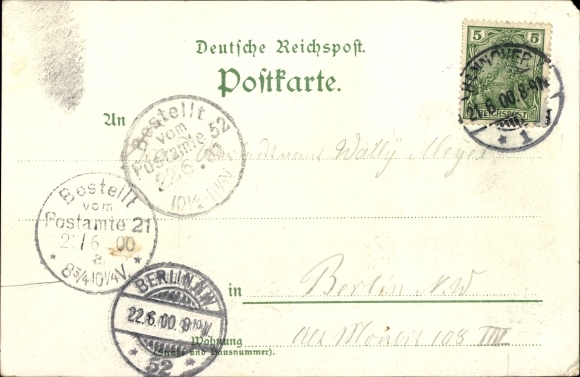 Deutsche Reichspost.
Postkarte.
5 5
REICHSPOST
HANNOVER
21.6.00.8-9N.
* 1
An
Bestellt
vom
Postamte 52
22.6.00
10½
Wally Meyer
Bestellt
vom
Postamte 21
22/6 00
a.
* 8¾10¼V. *
BERLIN N.W
22.6.00.
* 52 *
in Berlin N.W
Wohnung
(Straße und Hausnummer).
Alt Moabit 108 III